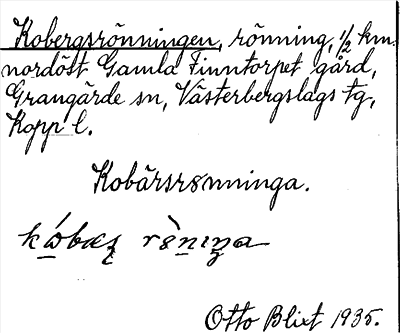 Kobergsrönningen, rönning, 1/2 km.
nordöst Gamla Finntorpet gård,
Grangärde sn, Västerbergslags tg,
Kopp l.
Kobärsrönninga.
Otto Blixt 1935.